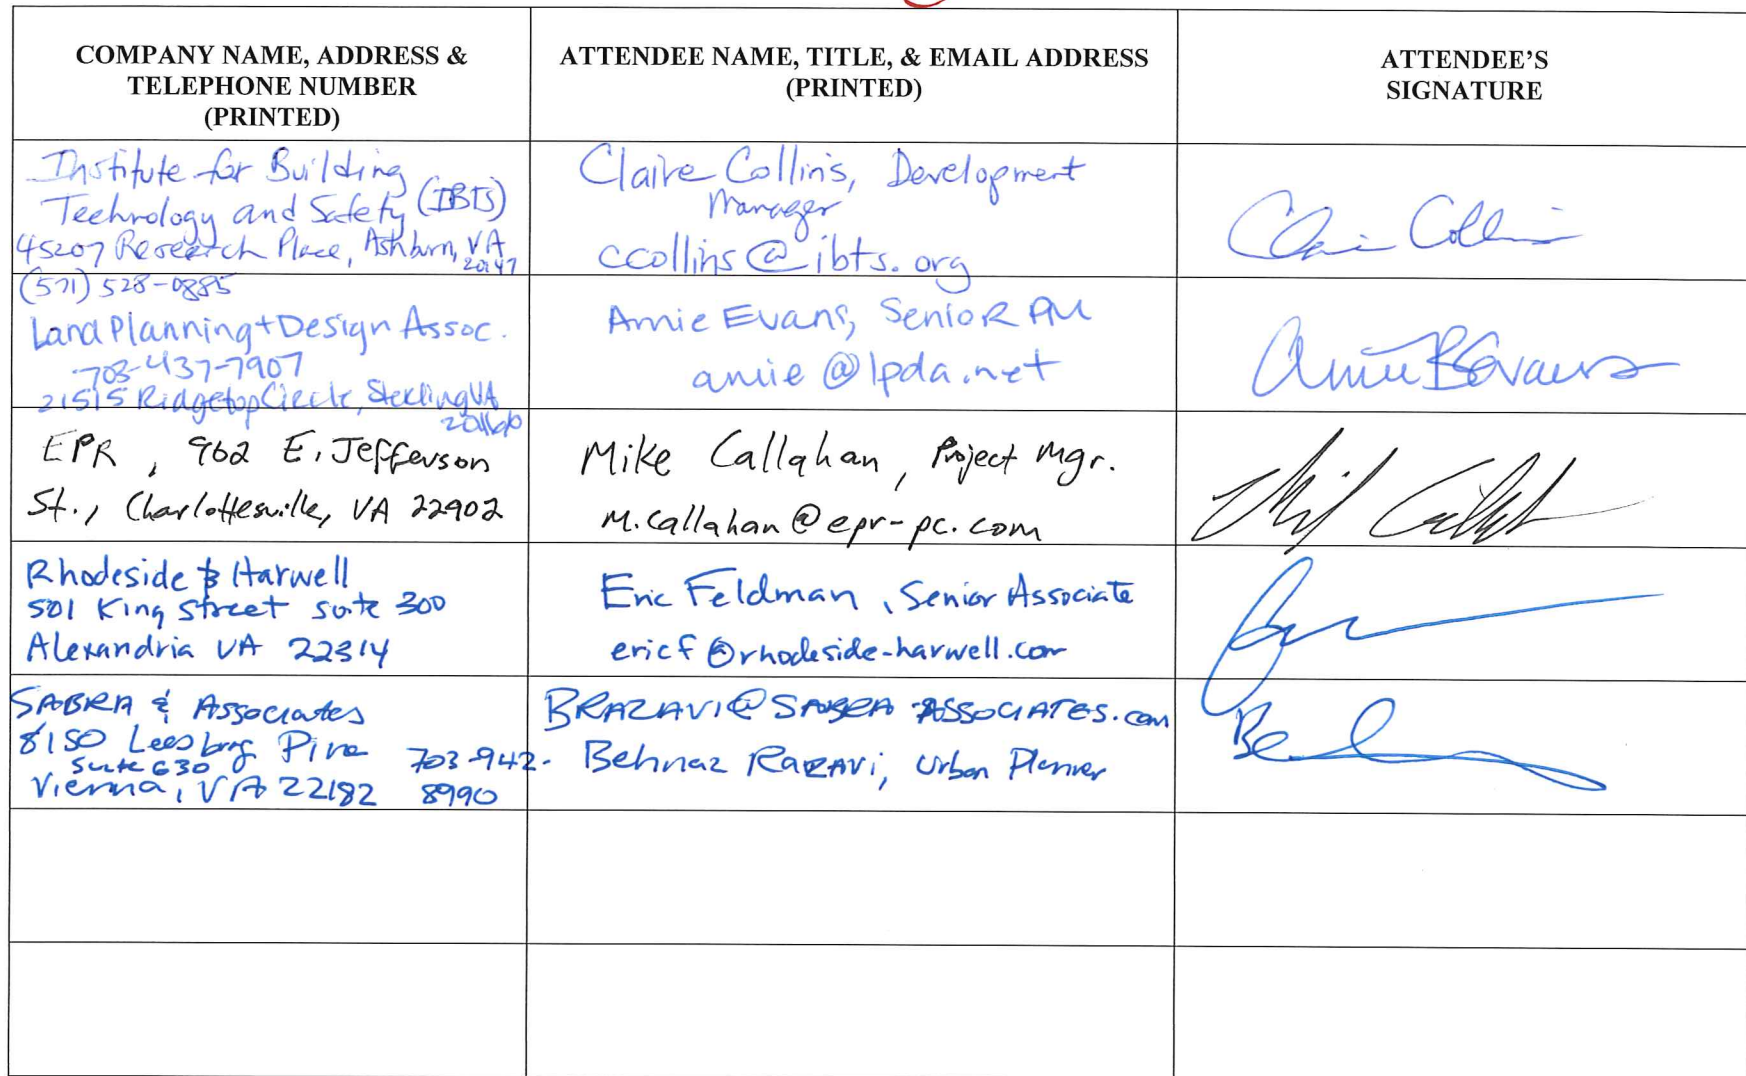 COMPANY NAME, ADDRESS &
TELEPHONE NUMBER
(PRINTED)
ATTENDEE NAME, TITLE, & EMAIL ADDRESS
(PRINTED)
ATTENDEE'S
SIGNATURE
Institute for Building
Technology and Safety (IBTS)
45207 Research Place, Ashburn, VA
20147
(571) 528-0885
Claire Collins, Development
Manager
ccollins@ibts.org
Claire Collins
Land Planning + Design Assoc.
703-437-7907
21515 Ridgetop Circle, Sterling VA
20166
Amie Evans, Senior PM
amie@lpda.net
Amie B Evans
EPR, 962 E. Jefferson
St., Charlottesville, VA 22902
Mike Callahan, Project Mgr.
M.Callahan@epr-pc.com
Rhodeside & Harwell
501 King Street Suite 300
Alexandria VA 22314
Eric Feldman, Senior Associate
ericf@rhodeside-harwell.com
SABRA & Associates
8150 Leesburg Pike
Suite 630
Vienna, VA 22182
703-942-
8990
BRAZAVI@SABRA-ASSOCIATES.com
Behnaz Razavi, Urban Planner